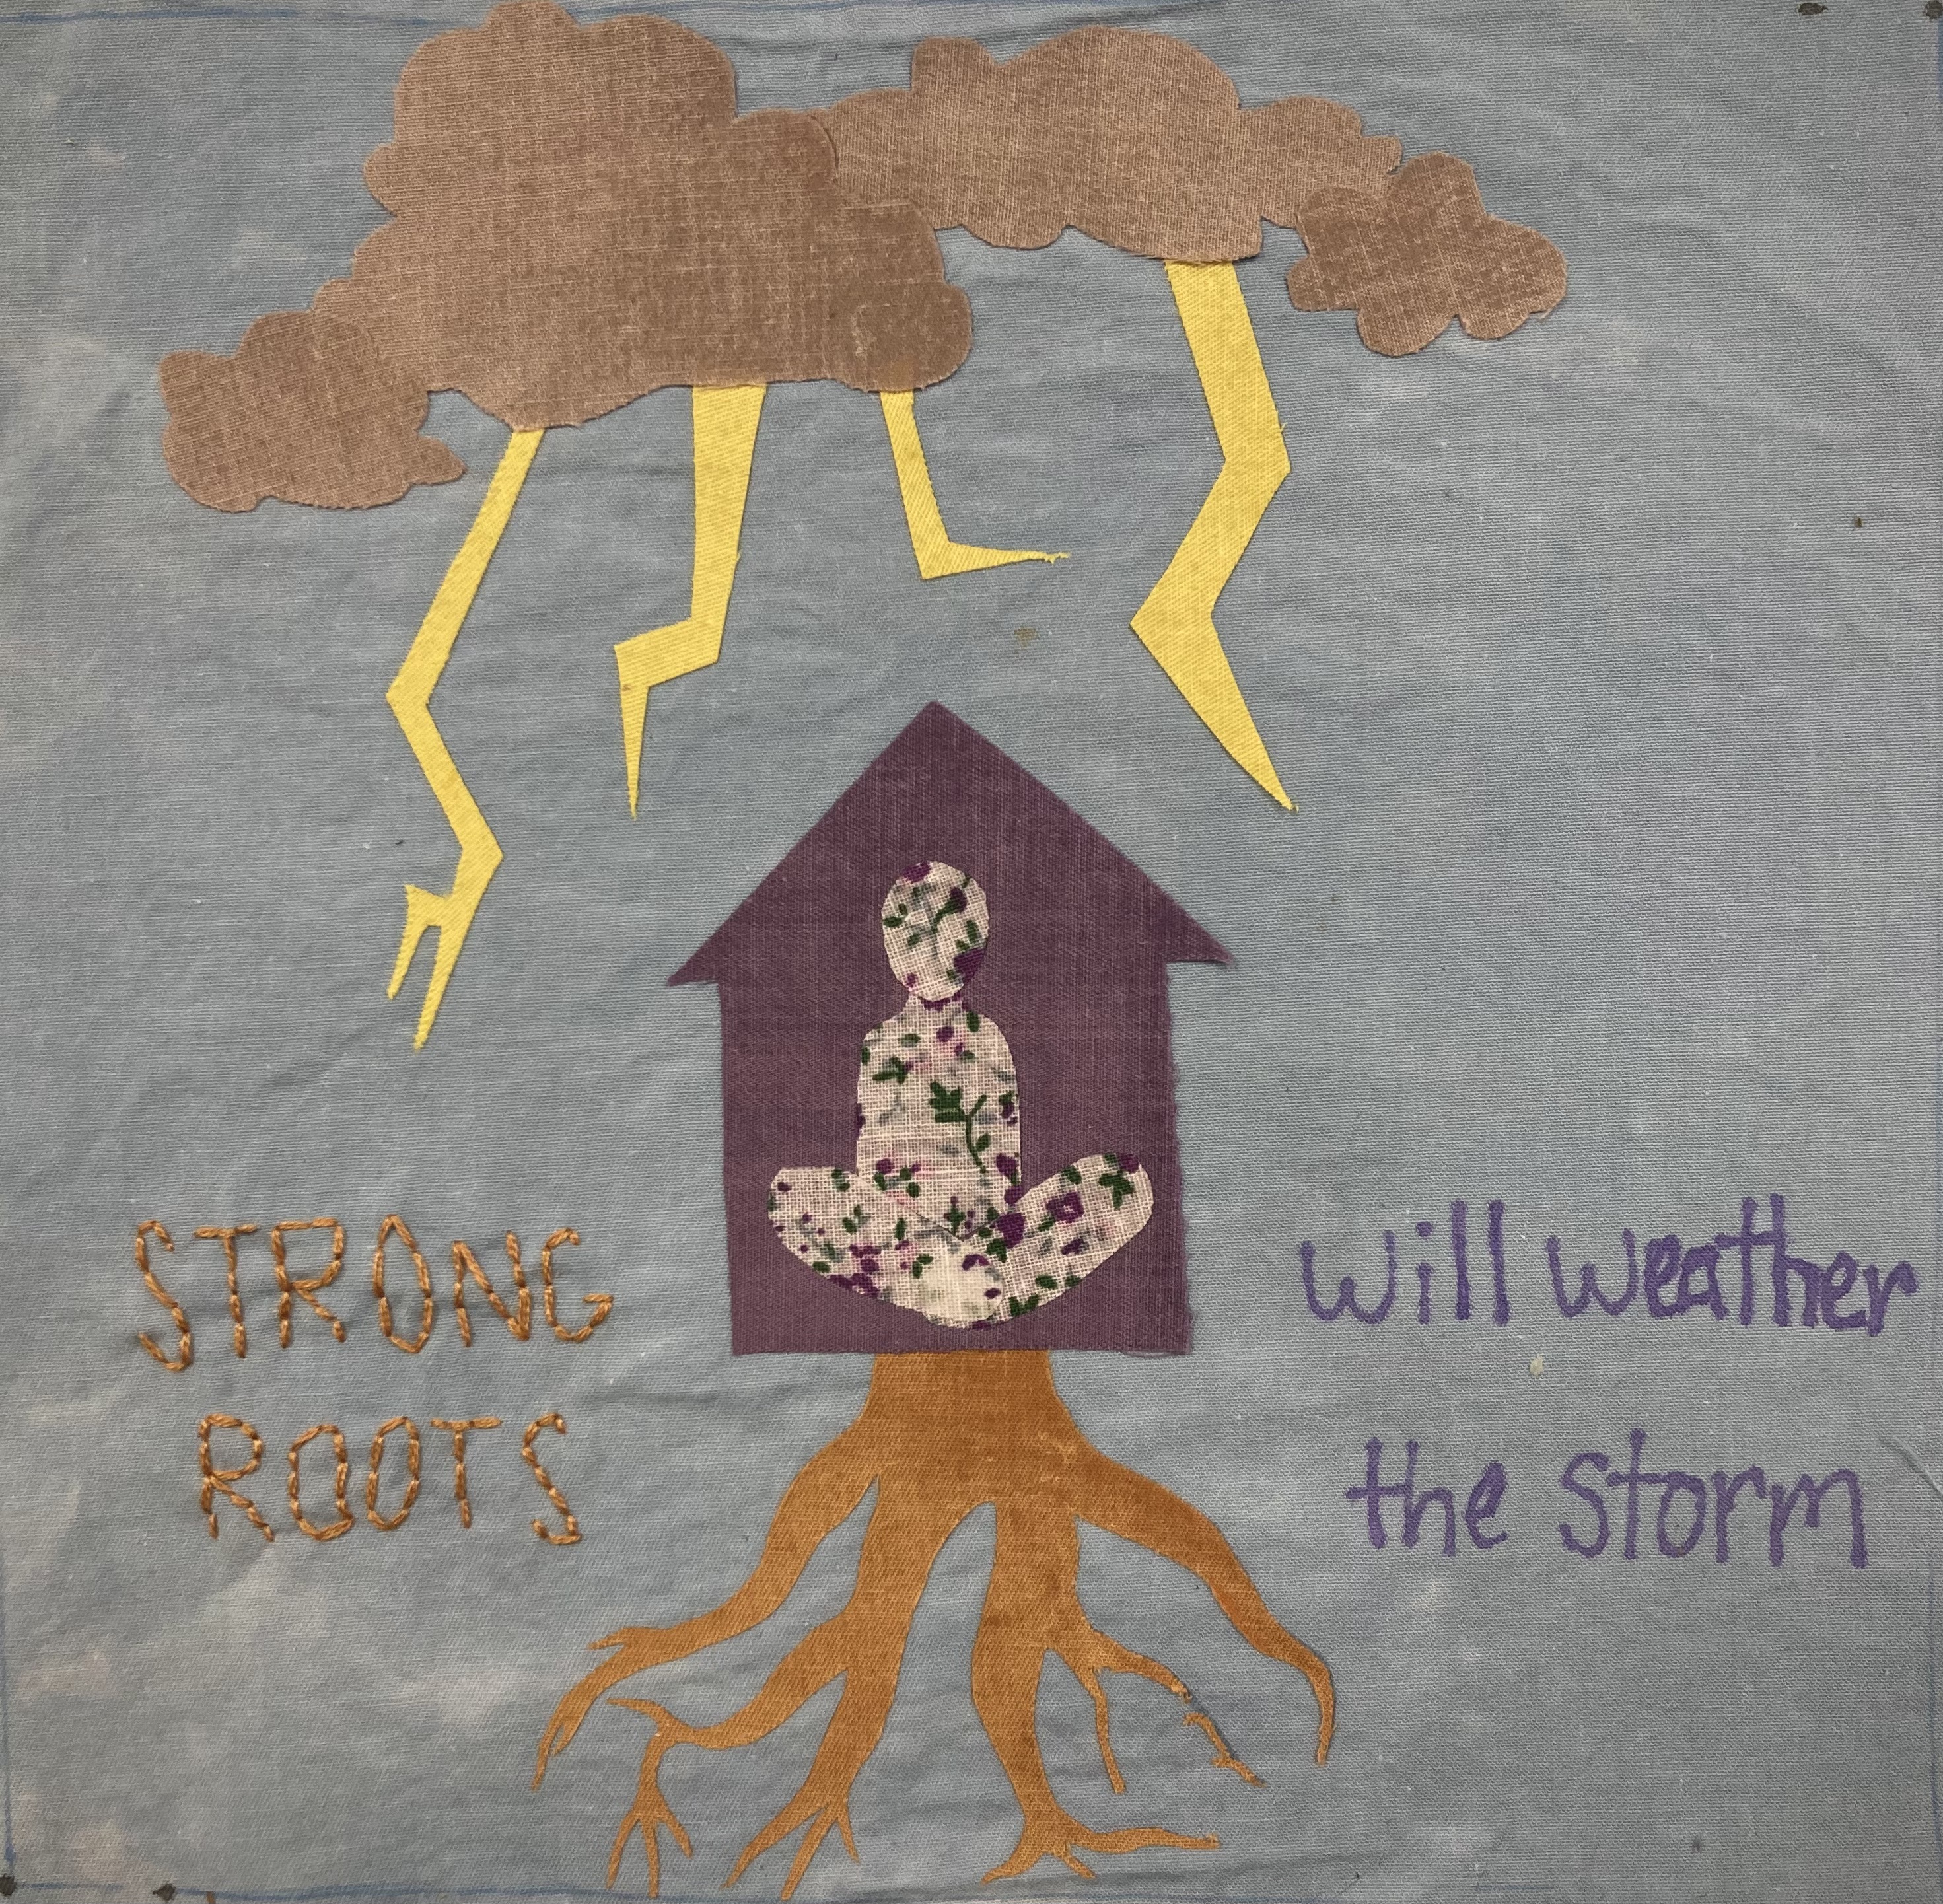 STRONG
ROOTS
will weather
the storm